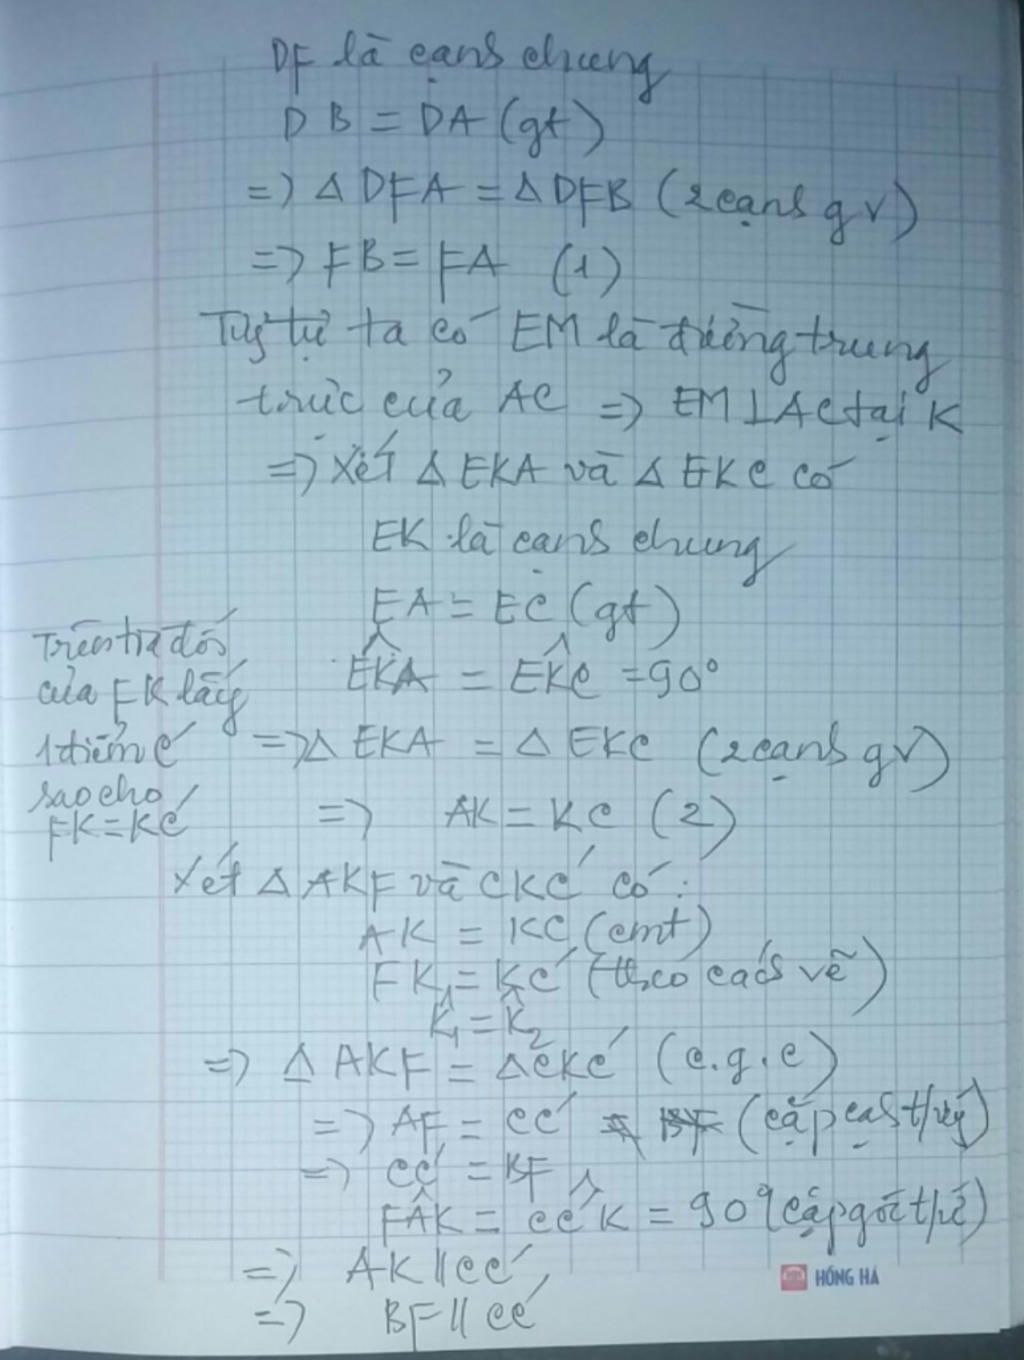 DF là cạnh chung
DB = DA (gt)
=> Δ DFA = Δ DFB (2 cạnh gv)
=> FB = FA (1)
Tg tự ta có EM là đường trung
trực của AC => EM ⊥ AC tại K
=> Xét Δ EKA và Δ EKC có
EK là cạnh chung
EA = EC (gt)
EK̂A = EK̂C = 90°
=> Δ EKA = Δ EKC (2 cạnh gv)
=> AK = KC (2)
Trên tia đối
của FK lấy
1 điểm C'
sao cho
FK = KC'
Xét Δ AKF và CKC' có:
AK = KC (cmt)
FK = KC' (theo cách vẽ)
K̂₁ = K̂₂
=> Δ AKF = Δ CKC' (c.g.c)
=> AF = CC' (cặp cạnh t/ứng)
=> CC' = BF
FÂK = CĈ'K = 90° (cặp góc t/ứ)
=> AK // CC'
=> BF // CC'
HỒNG HÀ